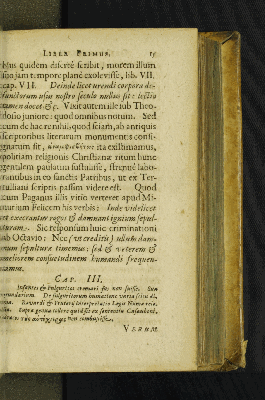 LIBER PRIMUS. 15
bius quidem disertè scribit, morem illum
suo jam tempore planè exolevisse, lib. VII.
cap. VII. Deinde licet urendi corpora de-
functorum usus nostro seculo nullus sit: lectio
tamen docet &c. Vixit autem ille sub Theo-
dosio juniore: quod omnibus notum. Sed
cum de hac re nihil, quod sciam, ab antiquis
scriptoribus literarum monumentis consi-
gnatum sit, ita existimamus,
politiam religionis Christianæ ritum hunc
gentilem paulatim sustulisse, strenuè labo-
rantibus in eo sanctis Patribus, ut ex Ter-
tulliani scriptis passim videre est. Quod
cum Paganus illis vitio verteret apud Mi-
nutium Felicem his verbis: Inde videlicet
et execrantur rogos & damnant ignium sepul-
turam. Sic responsum huic criminationi
ab Octavio: Nec (ut creditis) ullum dam-
num sepulturæ timemus: sed & veterem &
meliorem consuetudinem humandi frequen-
tamus.
CAP. III.
Infantes & fulguritos cremari fas non fuisse. Sug-
grundarium. De fulguritorum humatione varia
Ravardi & Pontani interpretatio Legis Numæ
Supra genua tollere quid sit ex sententia Casauboni,
non combustis.
VERUM